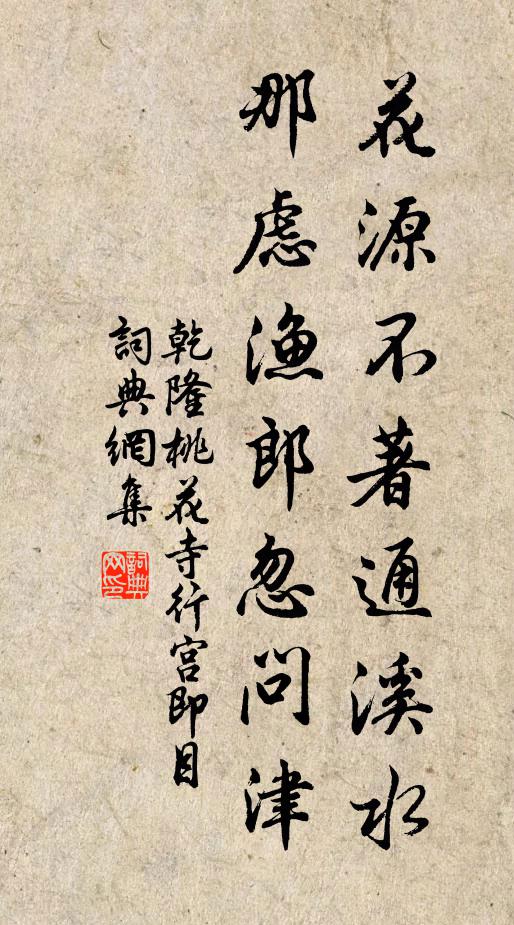 花源不著通溪水
那慮漁郎忽問津
乾隆桃花寺行宮即目
詞典網集
詞典網印